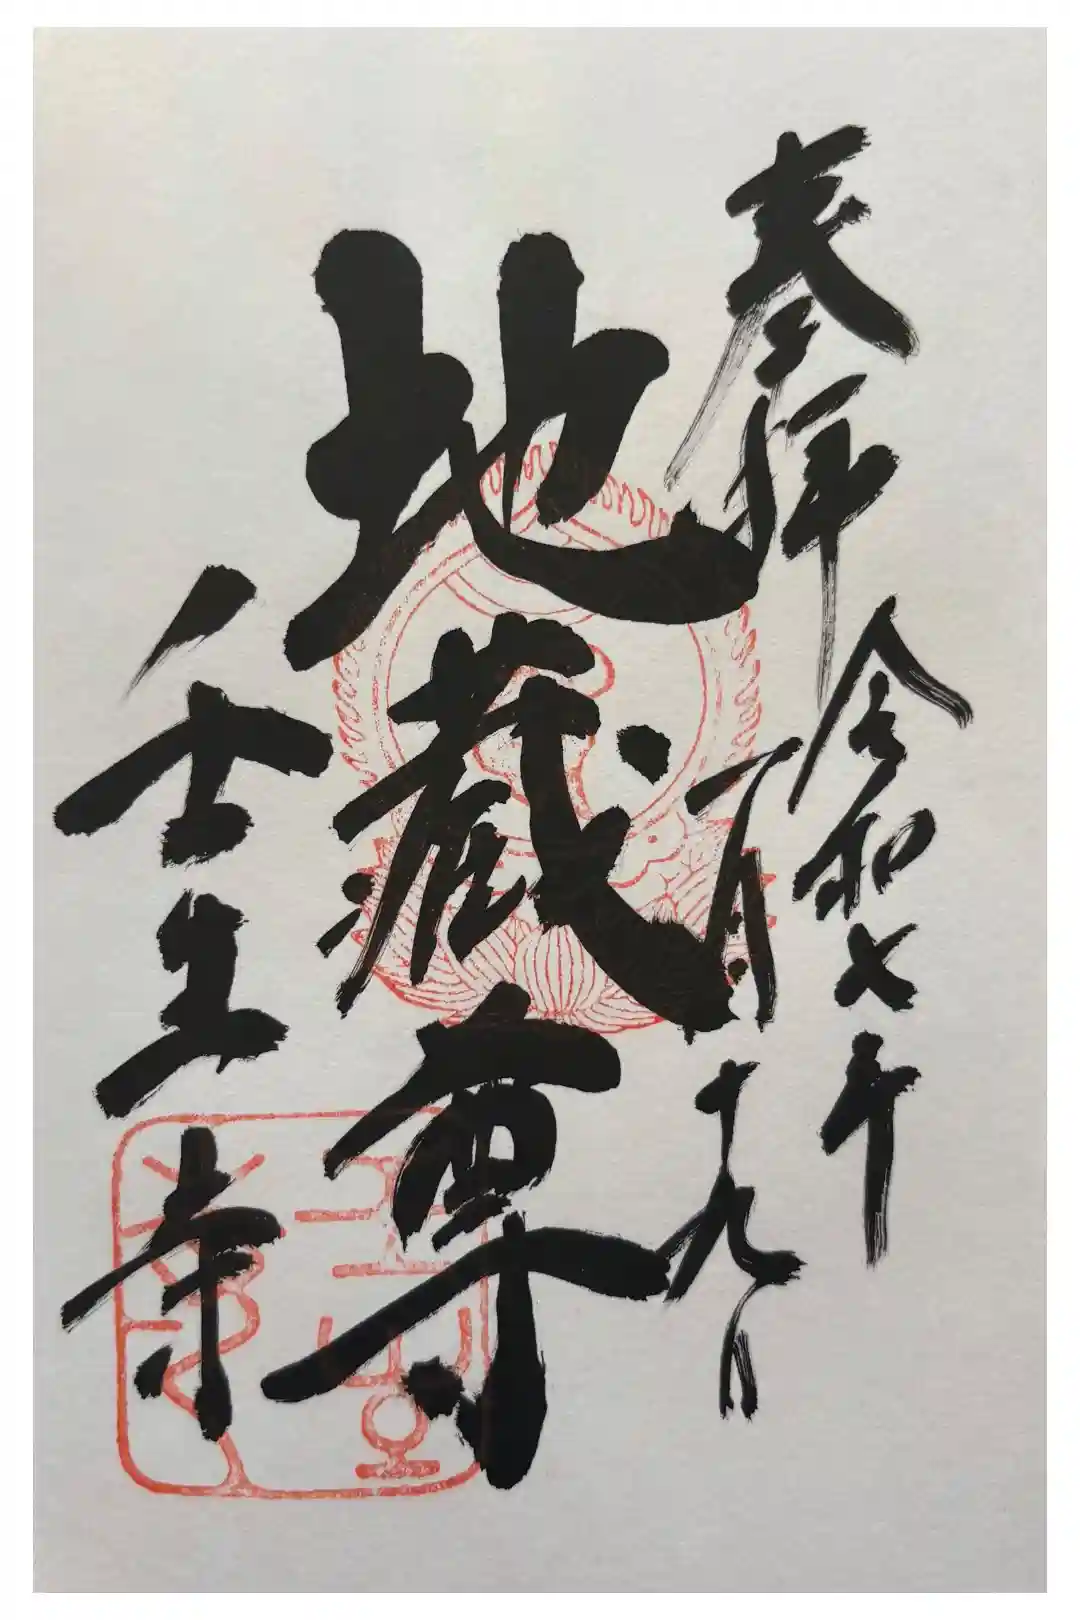 奉拝
令和七年
一月十九日
地蔵尊
壬生寺